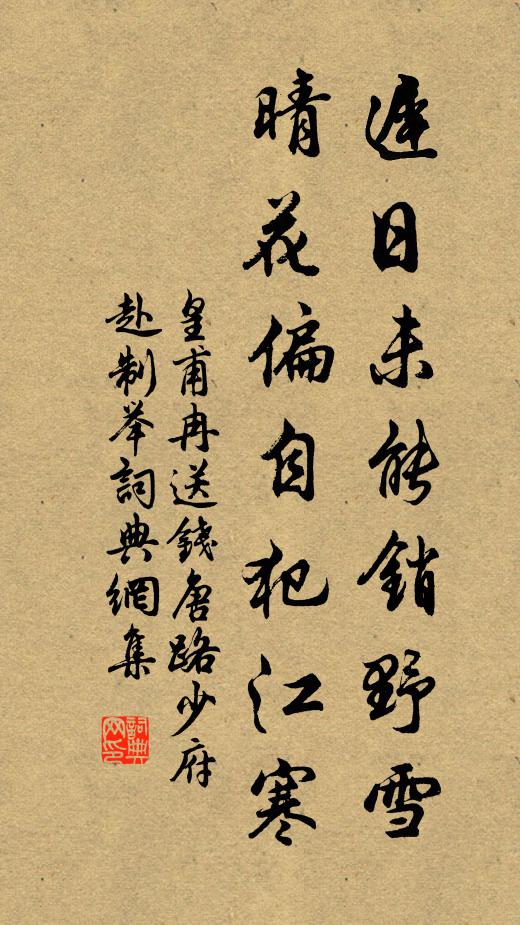 遲日未能銷野雪
晴花偏自犯江寒
皇甫冉送錢唐路少府
赴制举詞典網集
詞典
网印